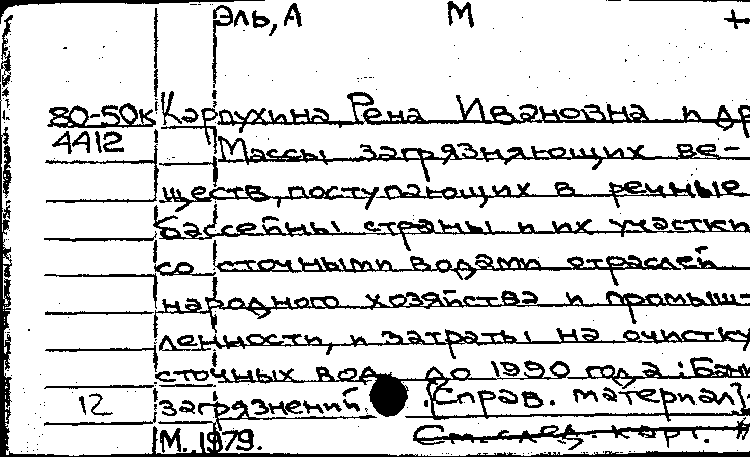 Эль, А М +
80-50к Карпухина, Рена Ивановна и др
4412 Массы загрязняющих ве-
ществ, поступающих в речные
бассейны страны и их участки
со сточными водами отраслей
народного хозяйства и промыш-
ленности, и затраты на очистку
сточных вод до 1990 года : Бан
12 загрязнений. [Справ. материал].
М., 1979. См. след. карт. #